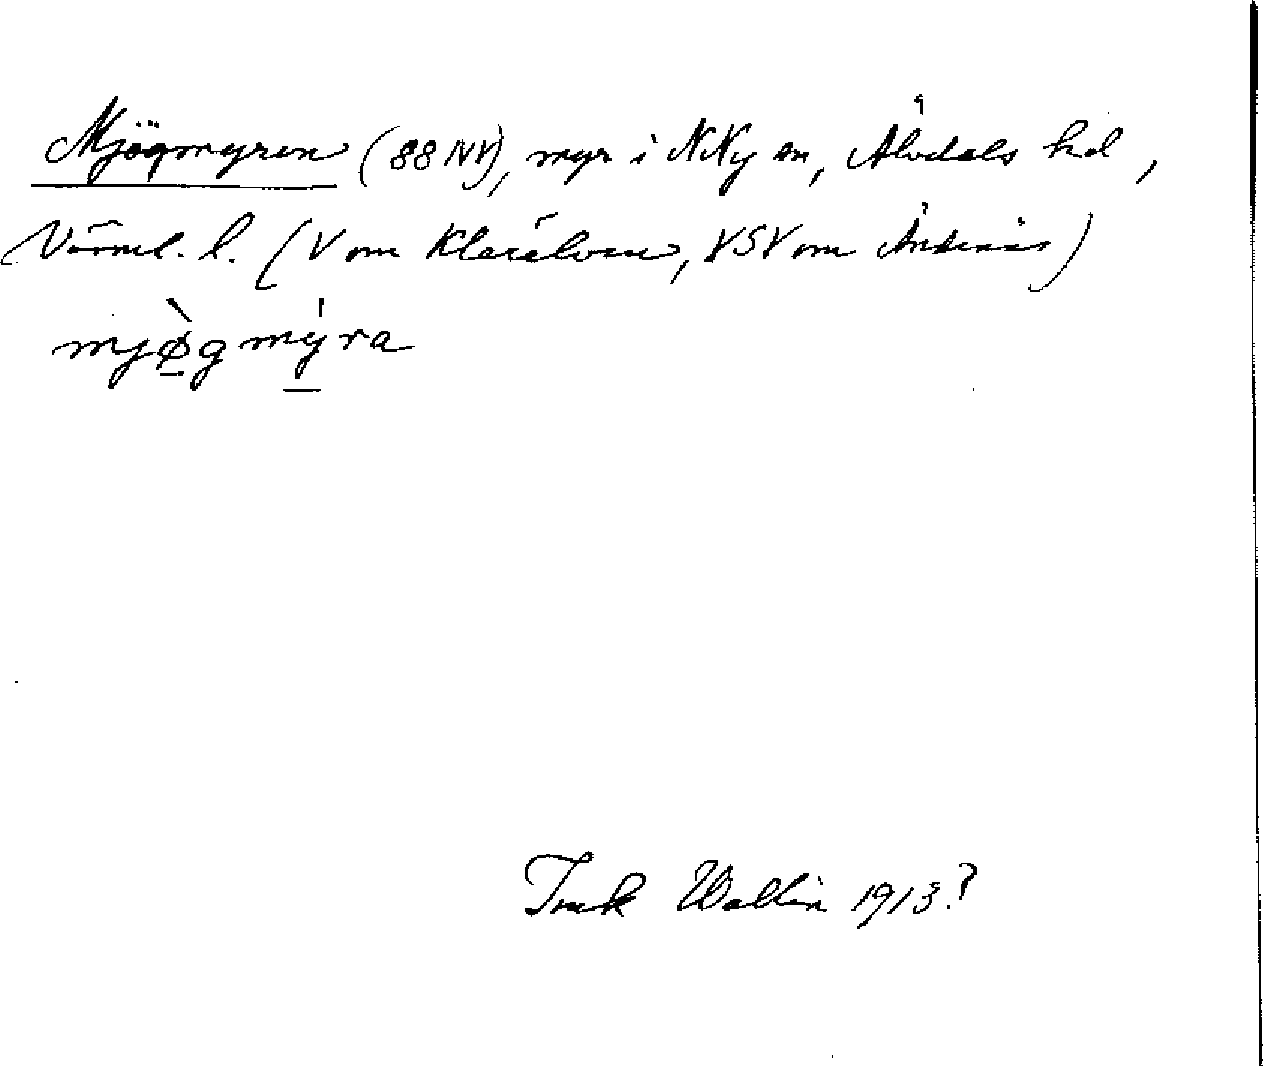 Mjögmyren (88 NV), myr i N Ny sn, Älvdals hd,
Värml. l. (V om Klarälven, VSV om Ändenäs)
mjø̱̀gmý̱ra
Wallin 1913?